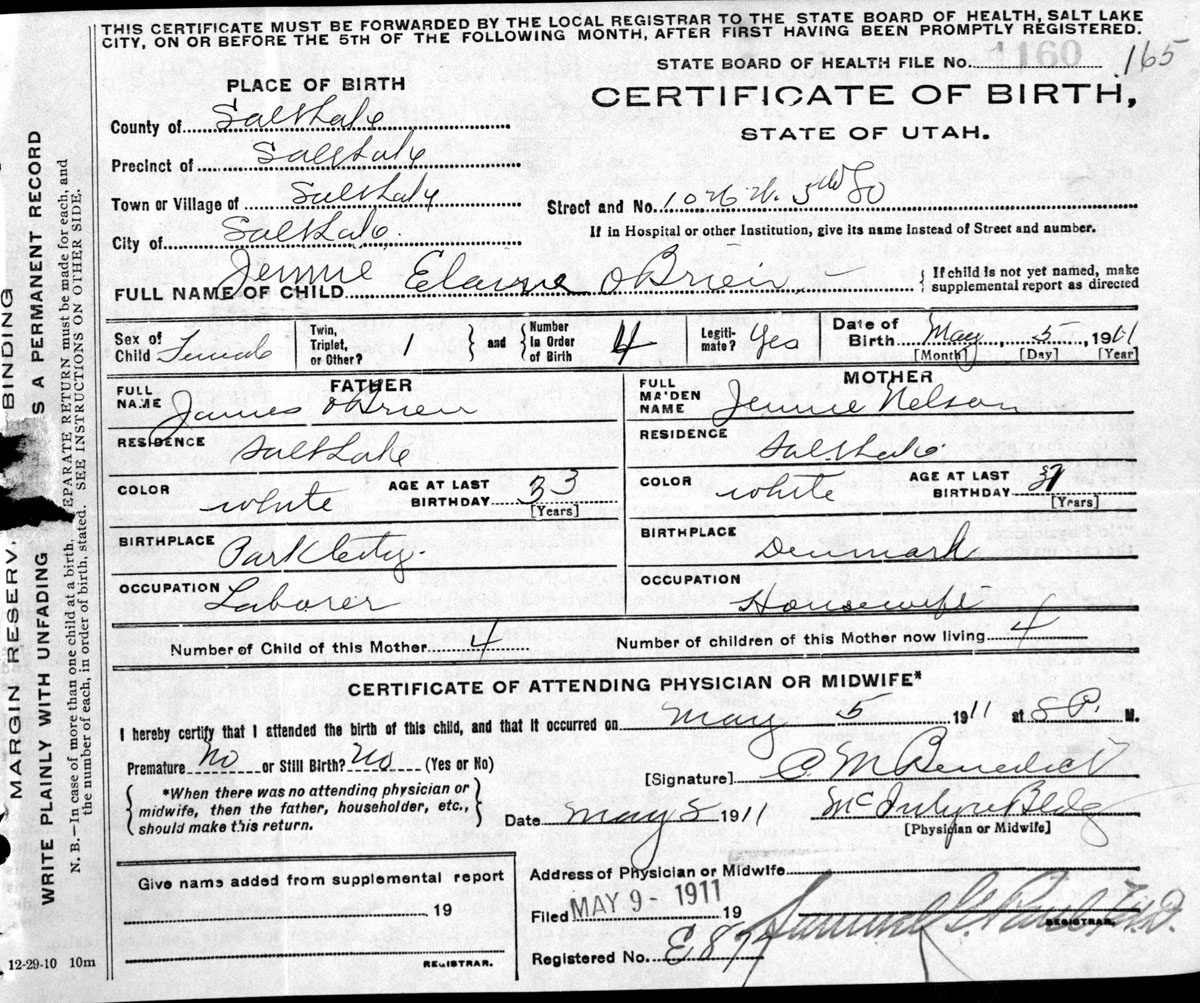 THIS CERTIFICATE MUST BE FORWARDED BY THE LOCAL REGISTRAR TO THE STATE BOARD OF HEALTH, SALT LAKE
CITY, ON OR BEFORE THE 5TH OF THE FOLLOWING MONTH, AFTER FIRST HAVING BEEN PROMPTLY REGISTERED.
STATE BOARD OF HEALTH FILE No. 1160 165
PLACE OF BIRTH
CERTIFICATE OF BIRTH,
STATE OF UTAH.
County of Salt Lake
Precinct of Salt Lake
Town or Village of Salt Lake
Street and No. W. 5th So
City of Salt Lake.
If in Hospital or other Institution, give its name instead of Street and number.
FULL NAME OF CHILD Jennie Elaine O'Brien
{ If child is not yet named, make
supplemental report as directed
Sex of Child Female
Twin, Triplet, or Other? 1 } and { Number in Order of Birth 4
Legiti-mate? Yes
Date of Birth May 5 1911
[Month] [Day] [Year]
FATHER
FULL NAME James O'Brien
RESIDENCE Salt Lake
COLOR white AGE AT LAST BIRTHDAY 33
[Years]
BIRTHPLACE Park City.
OCCUPATION Laborer
MOTHER
FULL MAIDEN NAME Jennie Nelson
RESIDENCE Salt Lake
COLOR white AGE AT LAST BIRTHDAY
[Years]
BIRTHPLACE Denmark
OCCUPATION Housewife
Number of Child of this Mother 4 Number of children of this Mother now living 4
CERTIFICATE OF ATTENDING PHYSICIAN OR MIDWIFE*
I hereby certify that I attended the birth of this child, and that it occurred on May 5 1911 at 8 P. M.
Premature No or Still Birth? No (Yes or No)
[Signature] C. M. Benedict
{ *When there was no attending physician or
midwife, then the father, householder, etc.,
should make this return. }
Date May 5 1911 McIntyre Bldg
[Physician or Midwife]
Give name added from supplemental report
19
REGISTRAR.
Address of Physician or Midwife
Filed MAY 9 - 1911 19 Samuel G. Paul M.D.
REGISTRAR.
Registered No. E877
12-29-10 10m
MARGIN RESERV. BINDING
WRITE PLAINLY WITH UNFADING S A PERMANENT RECORD
N. B.—In case of more than one child at a birth. EPARATE RETURN must be made for each, and
the number of each, in order of birth, stated. SEE INSTRUCTIONS ON OTHER SIDE.